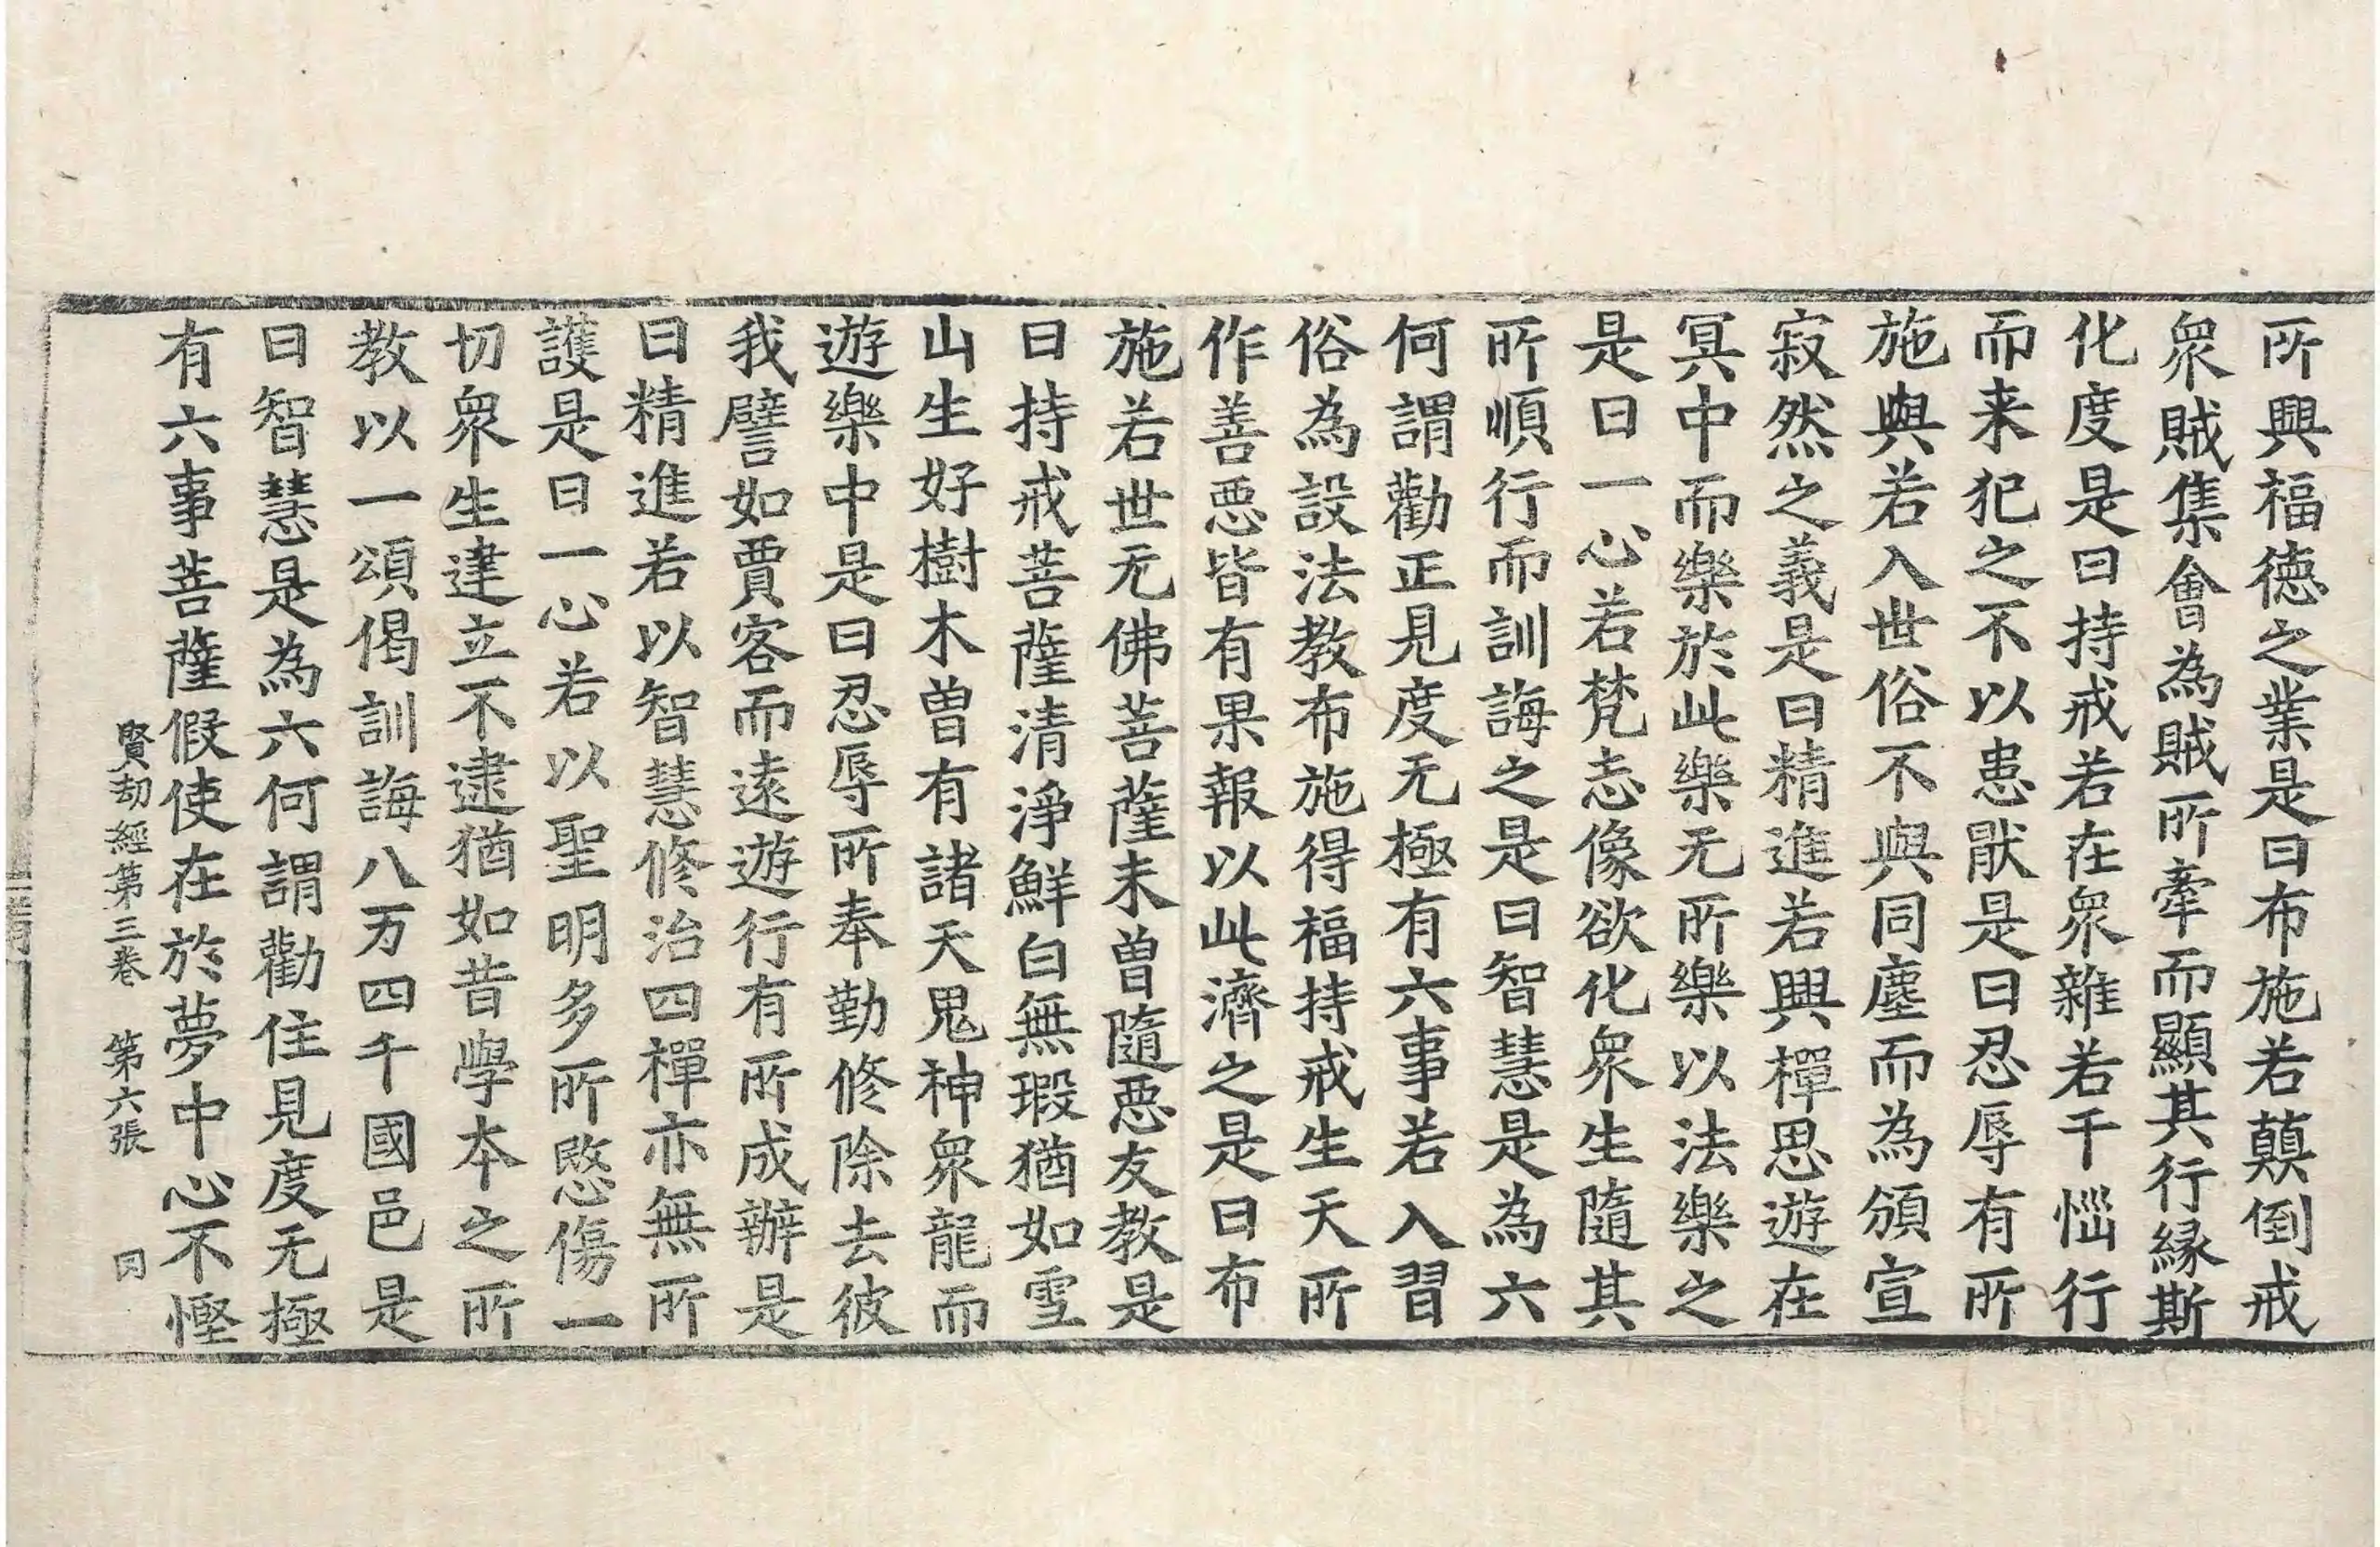 所興福德之業是曰布施若蓏倒戒
衆賊集會為賊所牽而顯其行緣斯
化度是曰持戒若在衆雜若干惱行
而来犯之不以患猒是曰忍辱有所
施與若入世俗不與同塵而為頒宣
寂然之義是曰精進若興禪思遊在
冥中而樂於此樂无所樂以法樂之
是曰一心若梵志像欲化衆生隨其
所順行而訓誨之是曰智慧是為六
何謂勸正見度无極有六事若入習
俗為設法教布施得福持戒生天所
作善惡皆有果報以此濟之是曰布
施若世无佛菩薩未曾隨惡友教是
曰持戒菩薩清淨鮮白無瑕猶如雪
山生好樹木曽有諸天鬼神衆龍而
遊樂中是曰忍辱所奉勤修除去彼
我譬如賈客而遠遊行有所成辦是
曰精進若以智慧修治四禪亦無所
護是曰一心若以聖明多所愍傷一
切衆生建立不逮猶如昔學本之所
教以一頌偈訓誨八万四千國邑是
曰智慧是為六何謂勸住見度无極
有六事菩薩假使在於夢中心不慳
賢劫經第三卷 第六張 曰